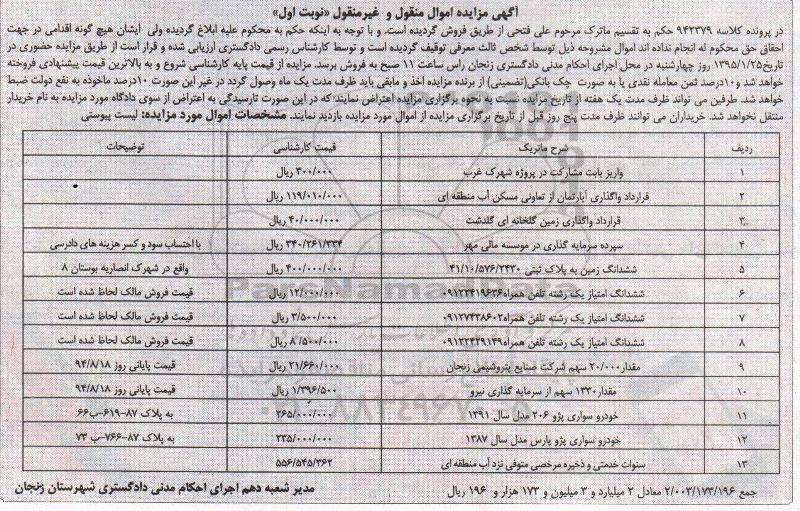 آگهی مزایده اموال منقول و غیرمنقول «نوبت اول»
در پرونده کلاسه ۹۴۲۳۷۹ حکم به تقسیم ماترک مرحوم علی فتحی از طریق فروش گردیده است. و با توجه به اینکه حکم به محکوم علیه ابلاغ گردیده ولی ایشان هیچ گونه اقدامی در جهت
احقاق حق محکوم له انجام نداده اند اموال مشروحه ذیل توسط شخص ثالث معرفی توقیف گردیده است و توسط کارشناس رسمی دادگستری ارزیابی شده و قرار است از طریق مزایده حضوری در
تاریخ ۱۳۹۵/۱/۲۵ روز چهارشنبه در محل اجرای احکام مدنی دادگستری زنجان راس ساعت ۱۱ صبح به فروش برسد. مزایده از قیمت پایه کارشناسی شروع و به بالاترین قیمت پیشنهادی فروخته
خواهد شد و ۱۰درصد ثمن معامله نقدی یا به صورت چک بانکی(تضمینی) از برنده مزایده اخذ و مابقی باید ظرف مدت یک ماه وصول گردد در غیر این صورت ۱۰درصد ماخوذه به نفع دولت ضبط
خواهد شد. طرفین می تواند ظرف مدت یک هفته از تاریخ مزایده نسبت به نحوه برگزاری مزایده اعتراض نمایند که در این صورت تارسیدگی به اعتراض از سوی دادگاه مورد مزایده به نام خریدار
منتقل نخواهد شد. خریداران می توانند ظرف مدت پنج روز قبل از تاریخ برگزاری مزایده از اموال مورد مزایده بازدید نمایند. مشخصات اموال مورد مزایده: لیست پیوستی
ردیف شرح ماتریک قیمت کارشناسی توضیحات
۱ واریز بابت مشارکت در پروژه شهرک غرب ۳۰۰/۰۰۰ ریال
۲ قرارداد واگذاری آپارتمان از تعاونی مسکن آب منطقه ای ۱۱۹/۰۱۰/۰۰۰ ریال
۳ قرارداد واگذاری زمین گلخانه ای گلدشت ۴۰/۰۰۰/۰۰۰ ریال
۴ سپرده سرمایه گذاری در موسسه مالی مهر ۳۴۰/۲۶۱/۳۳۴ ریال با احتساب سود و کسر هزینه های دادرسی
۵ ششدانگ زمین به پلاک ثبتی ۴۱/۱۰/۵۷۶/۲۴۳۰ ۴۰۰/۰۰۰/۰۰۰ ریال واقع در شهرک انصاریه بوستان ۸
۶ ششدانگ امتیاز یک رشته تلفن همراه ۰۹۱۲۳۴۱۹۶۳۶ ۱۲/۰۰۰/۰۰۰ ریال قیمت فروش مالک لحاظ شده است
۷ ششدانگ امتیاز یک رشته تلفن همراه ۰۹۱۲۷۴۳۸۶۰۲ ۳/۵۰۰/۰۰۰ ریال قیمت فروش مالک لحاظ شده است
۸ ششدانگ امتیاز یک رشته تلفن همراه ۰۹۱۲۲۴۲۹۱۴۹ ۸/۵۰۰/۰۰۰ ریال قیمت فروش مالک لحاظ شده است
۹ مقدار ۲۰/۰۰۰ سهم شرکت صنایع پتروشیمی زنجان ۲۱/۶۶۰/۰۰۰ ریال قیمت پایانی روز ۹۴/۸/۱۸
۱۰ مقدار ۱۳۳۰ سهم از سرمایه گذاری نیرو ۱/۳۹۶/۵۰۰ ریال قیمت پایانی روز ۹۴/۸/۱۸
۱۱ خودرو سواری پژو ۲۰۶ مدل سال ۱۳۹۱ ۲۶۵/۰۰۰/۰۰۰ به پلاک ۸۷-۶۱۹-ب۶۶
۱۲ خودرو سواری پژو پارس مدل سال ۱۳۸۷ ۲۳۵/۰۰۰/۰۰۰ به پلاک ۸۷-۷۶۶-ب ۷۳
۱۳ سنوات خدمتی و ذخیره مرخصی متوفی نزد آب منطقه ای ۵۵۶/۵۴۵/۳۶۲
جمع ۲/۰۰۳/۱۷۳/۱۹۶ معادل ۲ میلیارد و ۳ میلیون و ۱۷۳ هزار و ۱۹۶ ریال مدیر شعبه دهم اجرای احکام مدنی دادگستری شهرستان زنجان
ParsNamadData